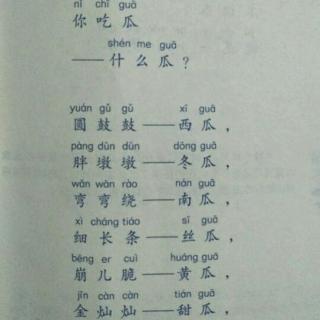 nǐ chī guā
你吃瓜
shén me guā
——什么瓜？
yuán gǔ gǔ xī guā
圆鼓鼓——西瓜，
pàng dūn dūn dōng guā
胖墩墩——冬瓜，
wān wān rào nán guā
弯弯绕——南瓜，
xì cháng tiáo sī guā
细长条——丝瓜，
bēng er cuì huáng guā
崩儿脆——黄瓜，
jīn càn càn tián guā
金灿灿——甜瓜，